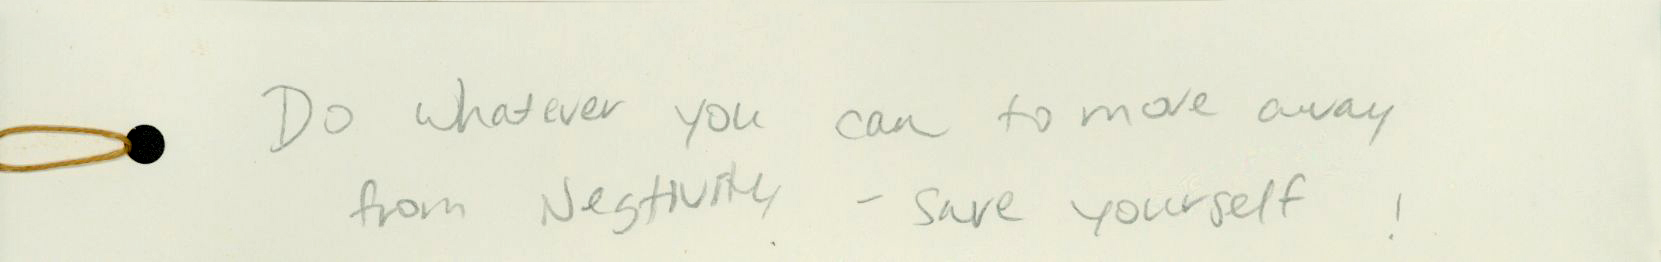 Do whatever you can to move away
from Negtivity - save yourself !